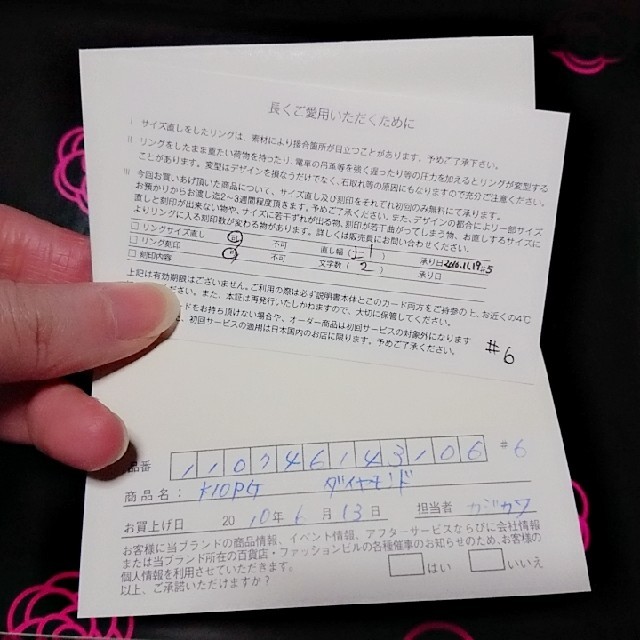 長くご愛用いただくために
Ⅰ サイズ直しをしたリングは、素材により接合箇所が目立つことがあります。予めご了承下さい。
Ⅱ リングをしたまま重たい荷物を持ったり、電車の吊革等を強く座ったり等の圧力を加えるとリングが変型する
ことがあります。変型はデザインを損なうだけでなく、石取れ等の原因にもなりますので充分ご注意ください。
Ⅲ 今回お買いあげ頂いた商品について、サイズ直し及び刻印をそれぞれ初回のみ無料にて承ります。
お預かりからお渡し迄2〜3週間程度頂きます。予めご了承ください。また、デザインの都合により一部サイズ
直しと刻印が出来ない物や、サイズに若干ずれが出る物、刻印が若干曲がってしまう物、お直しするサイズに
よりリングに入る刻印数が変わる物があります。詳しくは販売員にお問い合わせください。
□リングサイズ直し 可 不可 直し幅( ) 承り日2010.11.19
□リング刻印 可 不可 文字数( 2 ) 承り口
□刻印内容
上記は有効期限はございません。ご利用の際は必ず説明書本体とこのカード両方をご持参の上、お近くの4℃
ださい。また、本証は再発行いたしかねますので、大切に保管してください。
ードをお持ち頂けない場合や、オーダー商品は初回サービスの対象外になります
は、初回サービスの適用は日本国内のお店に限ります。予めご了承ください。
#6
品番 110746143106 #6
商品名: K10PG ダイヤモンド
お買上げ日 2010年6月13日 担当者 カジカワ
お客様に当ブランドの商品情報、イベント情報、アフターサービスならびに会社情報
または当ブランド所在の百貨店・ファッションビルの各種催事のお知らせのため、お客様の
個人情報を利用させていただきます。
以上、ご承諾いただけますか? □はい □いいえ